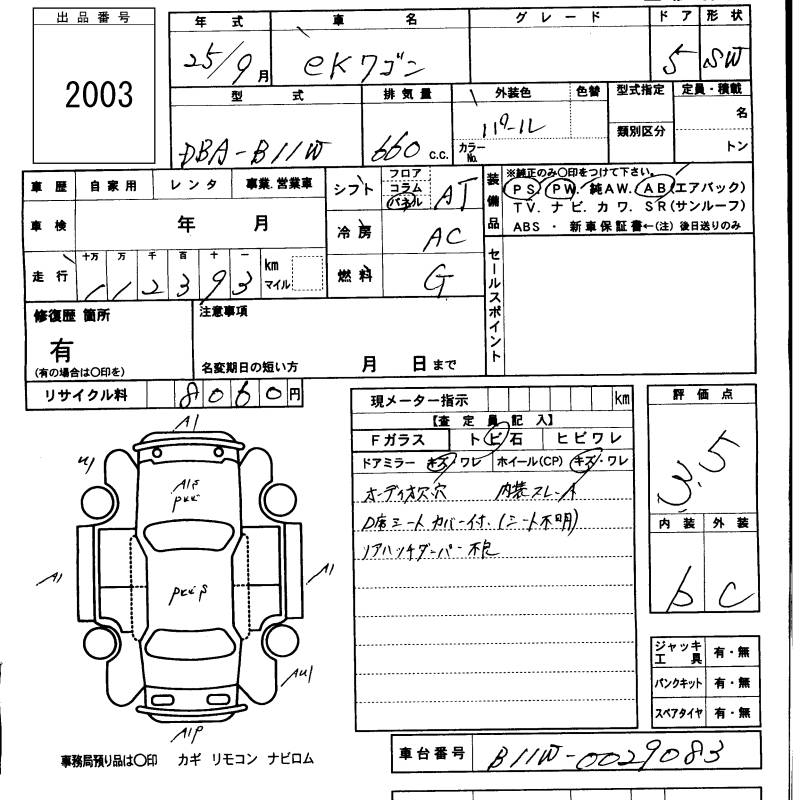 出品番号
2003
年式 車名 グレード ドア 形状
25/9月 eKワゴン 5 SW
型式 排気量 外装色 色替 型式指定 定員・積載
DBA-B11W 660 c.c. パール カラーNo. 類別区分 名 トン
車歴 自家用 レンタ 事業.営業車
車検 年 月
走行 十万 万 千 百 十 一
112393 km マイル
シフト フロア コラム パネル AT
冷房 AC
燃料 G
装備品
※純正のみ〇印をつけて下さい。
PS. PW. 純AW. AB(エアバック)
TV. ナビ. カワ. SR(サンルーフ)
ABS ・ 新車保証書←(注) 後日送りのみ
セールスポイント
修復歴 箇所
有
(有の場合は〇印を)
注意事項
名変期日の短い方 月 日まで
リサイクル料 8060円
現メーター指示 km
【査定員記入】
Fガラス トビ石 ヒビワレ
ドアミラー キズ・ワレ ホイール(CP) キズ・ワレ
オーディオ欠.穴 内装スレ.A
D席シートカバー付.(シート不明)
リアハッチダンパー不良
評価点
3.5
内装 外装
b C
A1
A1
A1
A1P
ジャッキ 工具 有・無
パンクキット 有・無
スペアタイヤ 有・無
事務局預り品は〇印 カギ リモコン ナビロム
車台番号 B11W-0029083